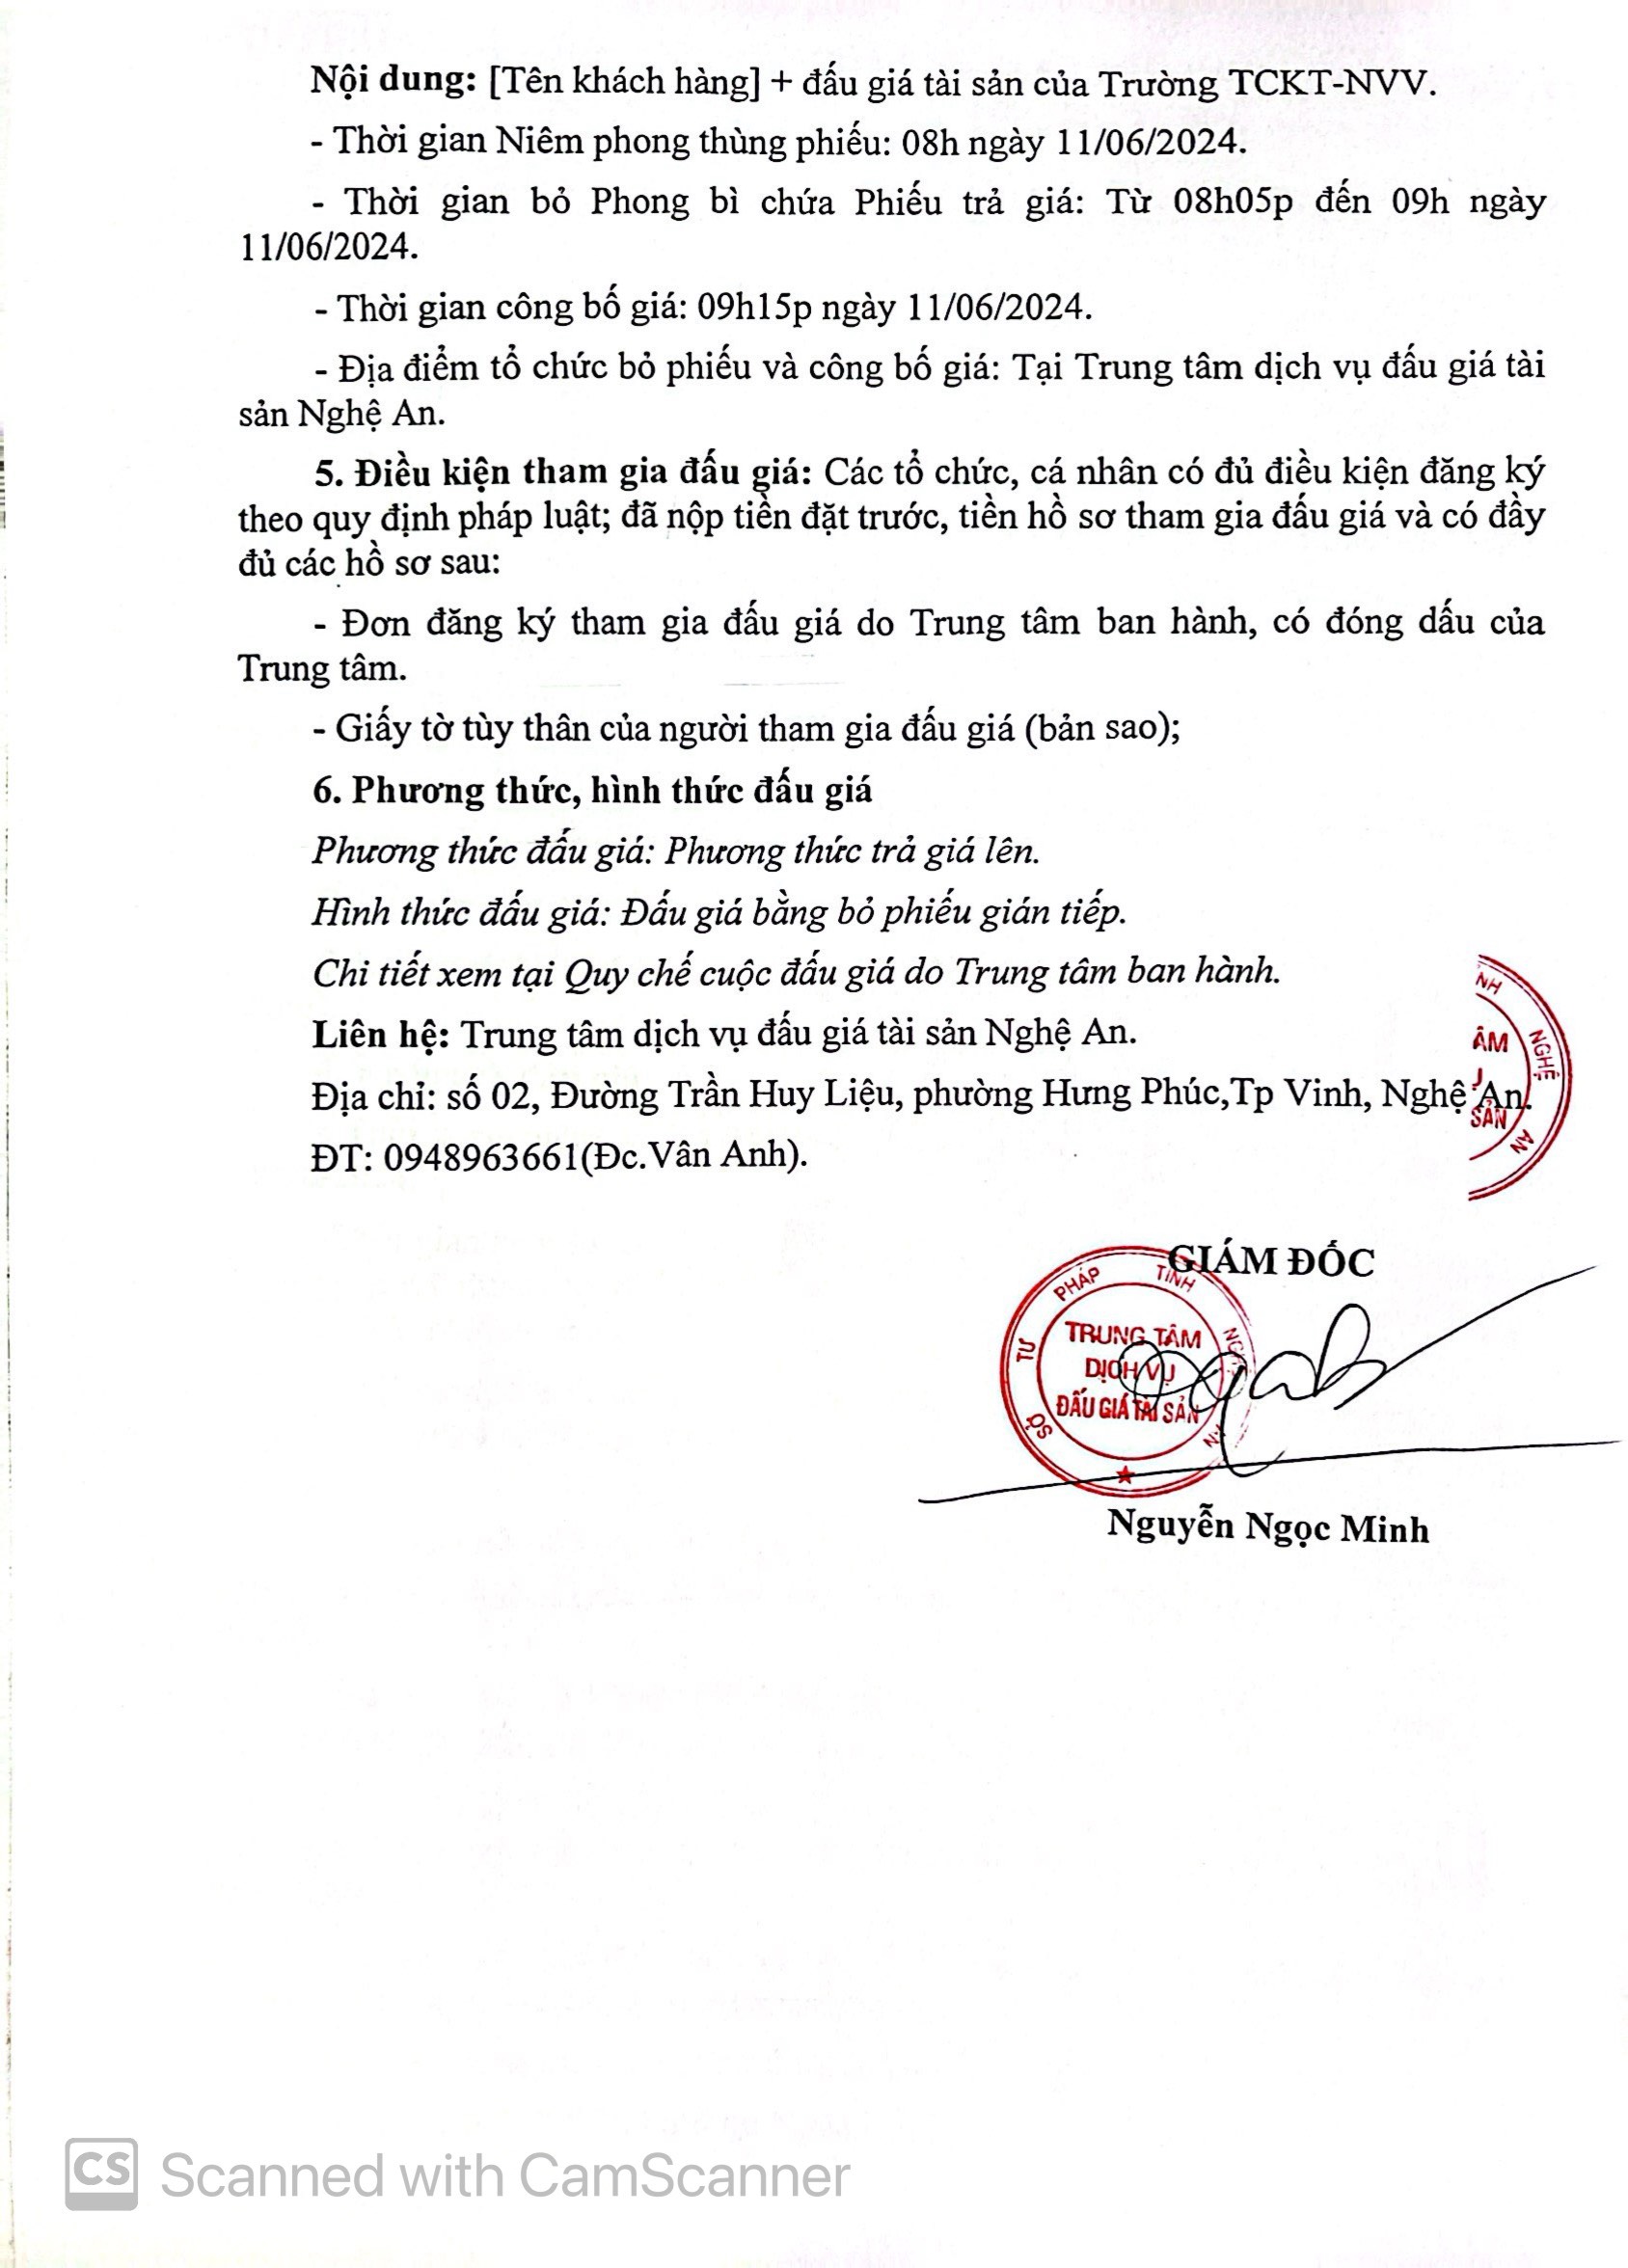 Nội dung: [Tên khách hàng] + đấu giá tài sản của Trường TCKT-NVV.
- Thời gian Niêm phong thùng phiếu: 08h ngày 11/06/2024.
- Thời gian bỏ Phong bì chứa Phiếu trả giá: Từ 08h05p đến 09h ngày
11/06/2024.
- Thời gian công bố giá: 09h15p ngày 11/06/2024.
- Địa điểm tổ chức bỏ phiếu và công bố giá: Tại Trung tâm dịch vụ đấu giá tài
sản Nghệ An.
5. Điều kiện tham gia đấu giá: Các tổ chức, cá nhân có đủ điều kiện đăng ký
theo quy định pháp luật; đã nộp tiền đặt trước, tiền hồ sơ tham gia đấu giá và có đầy
đủ các hồ sơ sau:
- Đơn đăng ký tham gia đấu giá do Trung tâm ban hành, có đóng dấu của
Trung tâm.
- Giấy tờ tùy thân của người tham gia đấu giá (bản sao);
6. Phương thức, hình thức đấu giá
Phương thức đấu giá: Phương thức trả giá lên.
Hình thức đấu giá: Đấu giá bằng bỏ phiếu gián tiếp.
Chi tiết xem tại Quy chế cuộc đấu giá do Trung tâm ban hành.
Liên hệ: Trung tâm dịch vụ đấu giá tài sản Nghệ An.
Địa chỉ: số 02, Đường Trần Huy Liệu, phường Hưng Phúc,Tp Vinh, Nghệ An.
ĐT: 0948963661(Đc.Vân Anh).
NH NGHỆ AN
ÂM
SẢN
GIÁM ĐỐC
SỞ TƯ PHÁP TỈNH
TRUNG TÂM
DỊCH VỤ
ĐẤU GIÁ TÀI SẢN
Nguyễn Ngọc Minh
CS Scanned with CamScanner